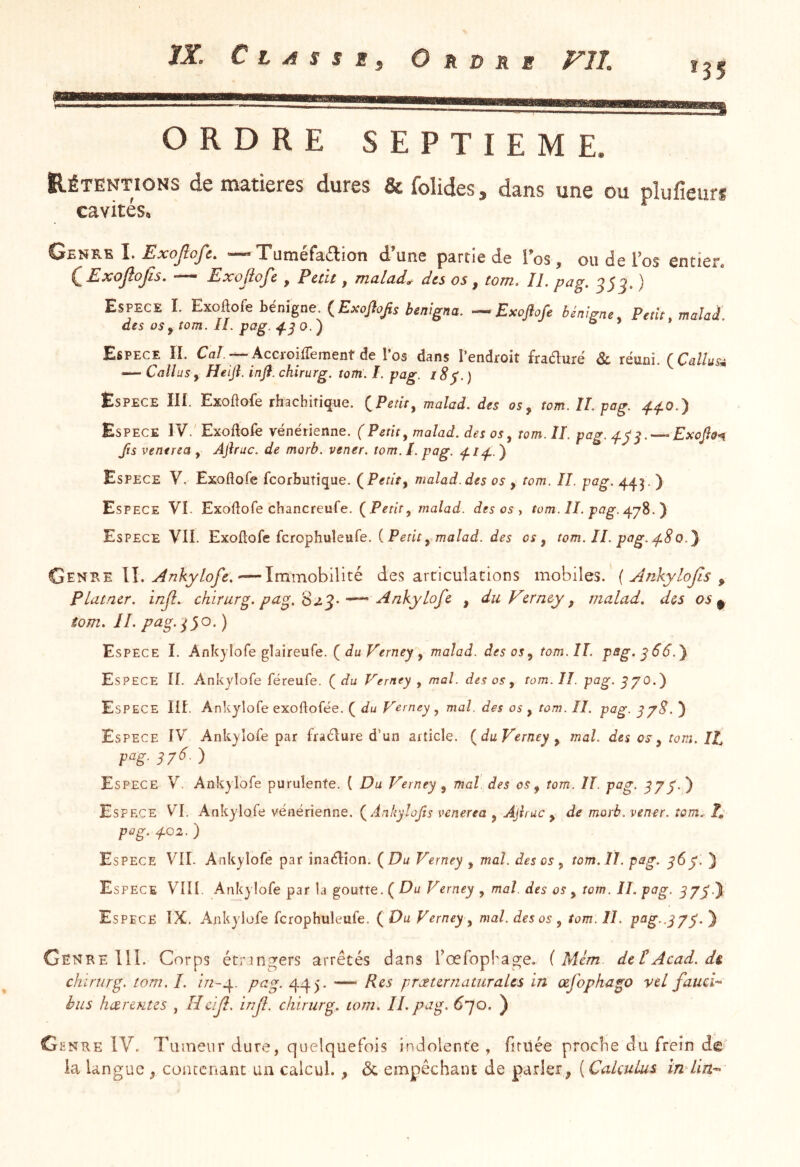 IX. CLASSE, ORDRE VII. 135
ORDRE SEPTIEME.
RÉTENTIONS de matieres dures & ſolides, dans une ou pluſieurs
cavités.
GENRE I. Exoſtoſe. — Tuméfaction d'une partie de l'os, ou de l'os entier.
(Exoſtoſis. — Exoſtoſe, Petit, malad. des os, tom. II. pag. 353.)
ESPECE I. Exoſtoſe bénigne. (Exoſtoſis benigna. — Exoſtoſe bénigne, Petit, malad.
des os, tom. II. pag. 430.)
ESPECE II. Cal. — Accroiſſement de l'os dans l'endroit fracturé & réuni. (Callus.
— Callus, Heiſt. inſt. chirurg. tom. I. pag. 185.)
ESPECE III. Exoſtoſe rhachitique. (Petit, malad. des os, tom. II. pag. 440.)
ESPECE IV. Exoſtoſe vénérienne. (Petit, malad. des os, tom. II. pag. 453. — Exoſto-
ſis venerea, Aſtruc. de morb. vener. tom. I. pag. 414.)
ESPECE V. Exoſtoſe ſcorbutique. (Petit, malad. des os, tom. II. pag. 443.)
ESPECE VI. Exoſtoſe chancreuſe. (Petit, malad. des os, tom. II. pag. 478.)
ESPECE VII. Exoſtoſe ſcrophuleuſe. (Petit, malad. des os, tom. II. pag. 480.)
GENRE II. Ankyloſe. — Immobilité des articulations mobiles. (Ankyloſis,
Platner. inſt. chirurg. pag. 823. — Ankyloſe, du Verney, malad. des os,
tom. II. pag. 350.)
ESPECE I. Ankyloſe glaireuſe. (du Verney, malad. des os, tom. II. pag. 366.)
ESPECE II. Ankyloſe ſéreuſe. (du Verney, mal. des os, tom. II. pag. 370.)
ESPECE III. Ankyloſe exoſtoſée. (du Verney, mal. des os, tom. II. pag. 378.)
ESPECE IV. Ankyloſe par fracture d'un article. (du Verney, mal. des os, tom. II.
pag. 376.)
ESPECE V. Ankyloſe purulente. (Du Verney, mal. des os, tom. II. pag. 375.)
ESPECE VI. Ankyloſe vénérienne. (Ankyloſis venerea, Aſtruc, de morb. vener. tom. I.
pag. 402.)
ESPECE VII. Ankyloſe par inaction. (Du Verney, mal. des os, tom. II. pag. 365.)
ESPECE VIII. Ankyloſe par la goutte. (Du Verney, mal. des os, tom. II. pag. 375.)
ESPECE IX. Ankyloſe ſcrophuleuſe. (Du Verney, mal. des os, tom. II. pag. 375.)
GENRE III. Corps étrangers arrêtés dans l'œſophage. (Mém. de l'Acad. de
chirurg. tom. I. in-4. pag. 445. — Res præternaturales in œſophago vel fauci-
bus hærentes, Heiſt. inſt. chirurg. tom. II. pag. 670.)
GENRE IV. Tumeur dure, quelquefois indolente, ſituée proche du frein de
la langue, contenant un calcul., & empêchant de parler, (Calculus in lin-